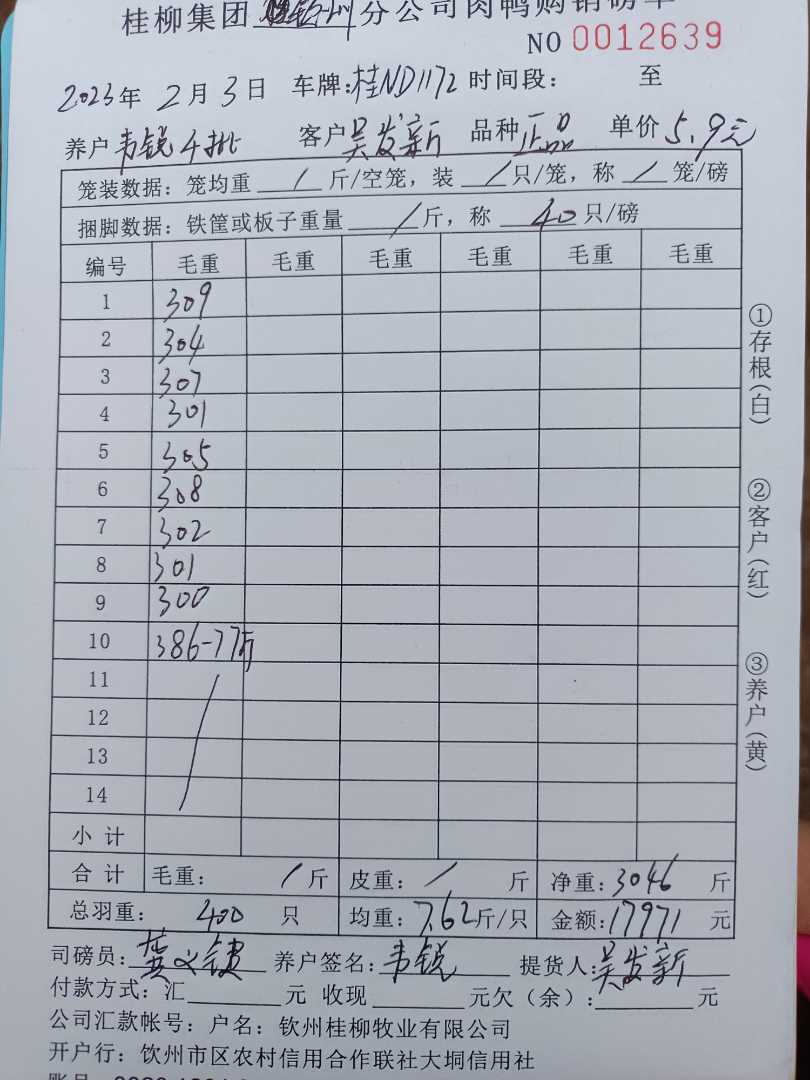 桂柳集团钦州分公司肉鸭购销磅单
NO 0012639
2023年 2月 3日 车牌:桂ND1172 时间段: 至
养户 韦锐4批 客户 吴发新 品种 正品 单价 5.9元
笼装数据: 笼均重 / 斤/空笼, 装 / 只/笼, 称 / 笼/磅
捆脚数据: 铁筐或板子重量 / 斤, 称 40 只/磅
编号 毛重 毛重 毛重 毛重 毛重 毛重
1 309
2 304
3 307
4 301
5 305
6 308
7 302
8 301
9 300
10 386-77斤
11
12
13
14
小 计
合 计 毛重: / 斤 皮重: / 斤 净重: 3046 斤
总羽重: 400 只 均重: 7.62 斤/只 金额: 17971 元
司磅员: 养户签名: 韦锐 提货人: 吴发新
付款方式: 汇 元 收现 元欠(余): 元
公司汇款帐号: 户名: 钦州桂柳牧业有限公司
开户行: 钦州市区农村信用合作联社大垌信用社
①存根(白)
②客户(红)
③养户(黄)